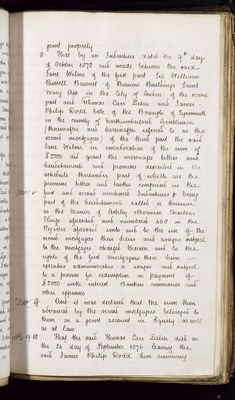 joint property
8 That by an Indenture dated the 9th day
of October 1870 and made between the said
Jane Wilson of the first part Sir William
Russell Baronet of Browns Buildings Saint
Mary Axe in the City of London of the second
part and Thomas Carr and James
Philip Dodd both of the Borough of Tynemouth
in the county of Northumberland Gentlemen
(thereinafter and hereinafter referred to as the
second mortgagees) of the third part the said
Jane Wilson in consideration of the sum of
£2000 did grant the messuages and
hereditaments and premises described in the
schedule thereunder part of which are the
premises and comprised in the
first and second Indentures & being
part of the hereditaments called or known
as the manor of
and numbered 420 on the
Register aforesaid unto and to the use of the
second mortgagees their heirs and assigns subject
to the mortgages charged thereon and to the
rights of the first mortgagees their heirs
executors administrators or assigns and subject
to a proviso for redemption on payment of
£2000 with interest Bankers commission and
other expenses
9 And it was declared that the sum then
advanced by the second mortgagees belonged to
them on a joint account in Equity as well
as at law
10 That the said Thomas Carr died
on the 24 day of September 1876 leaving the
said James Philip Dodd him surviving